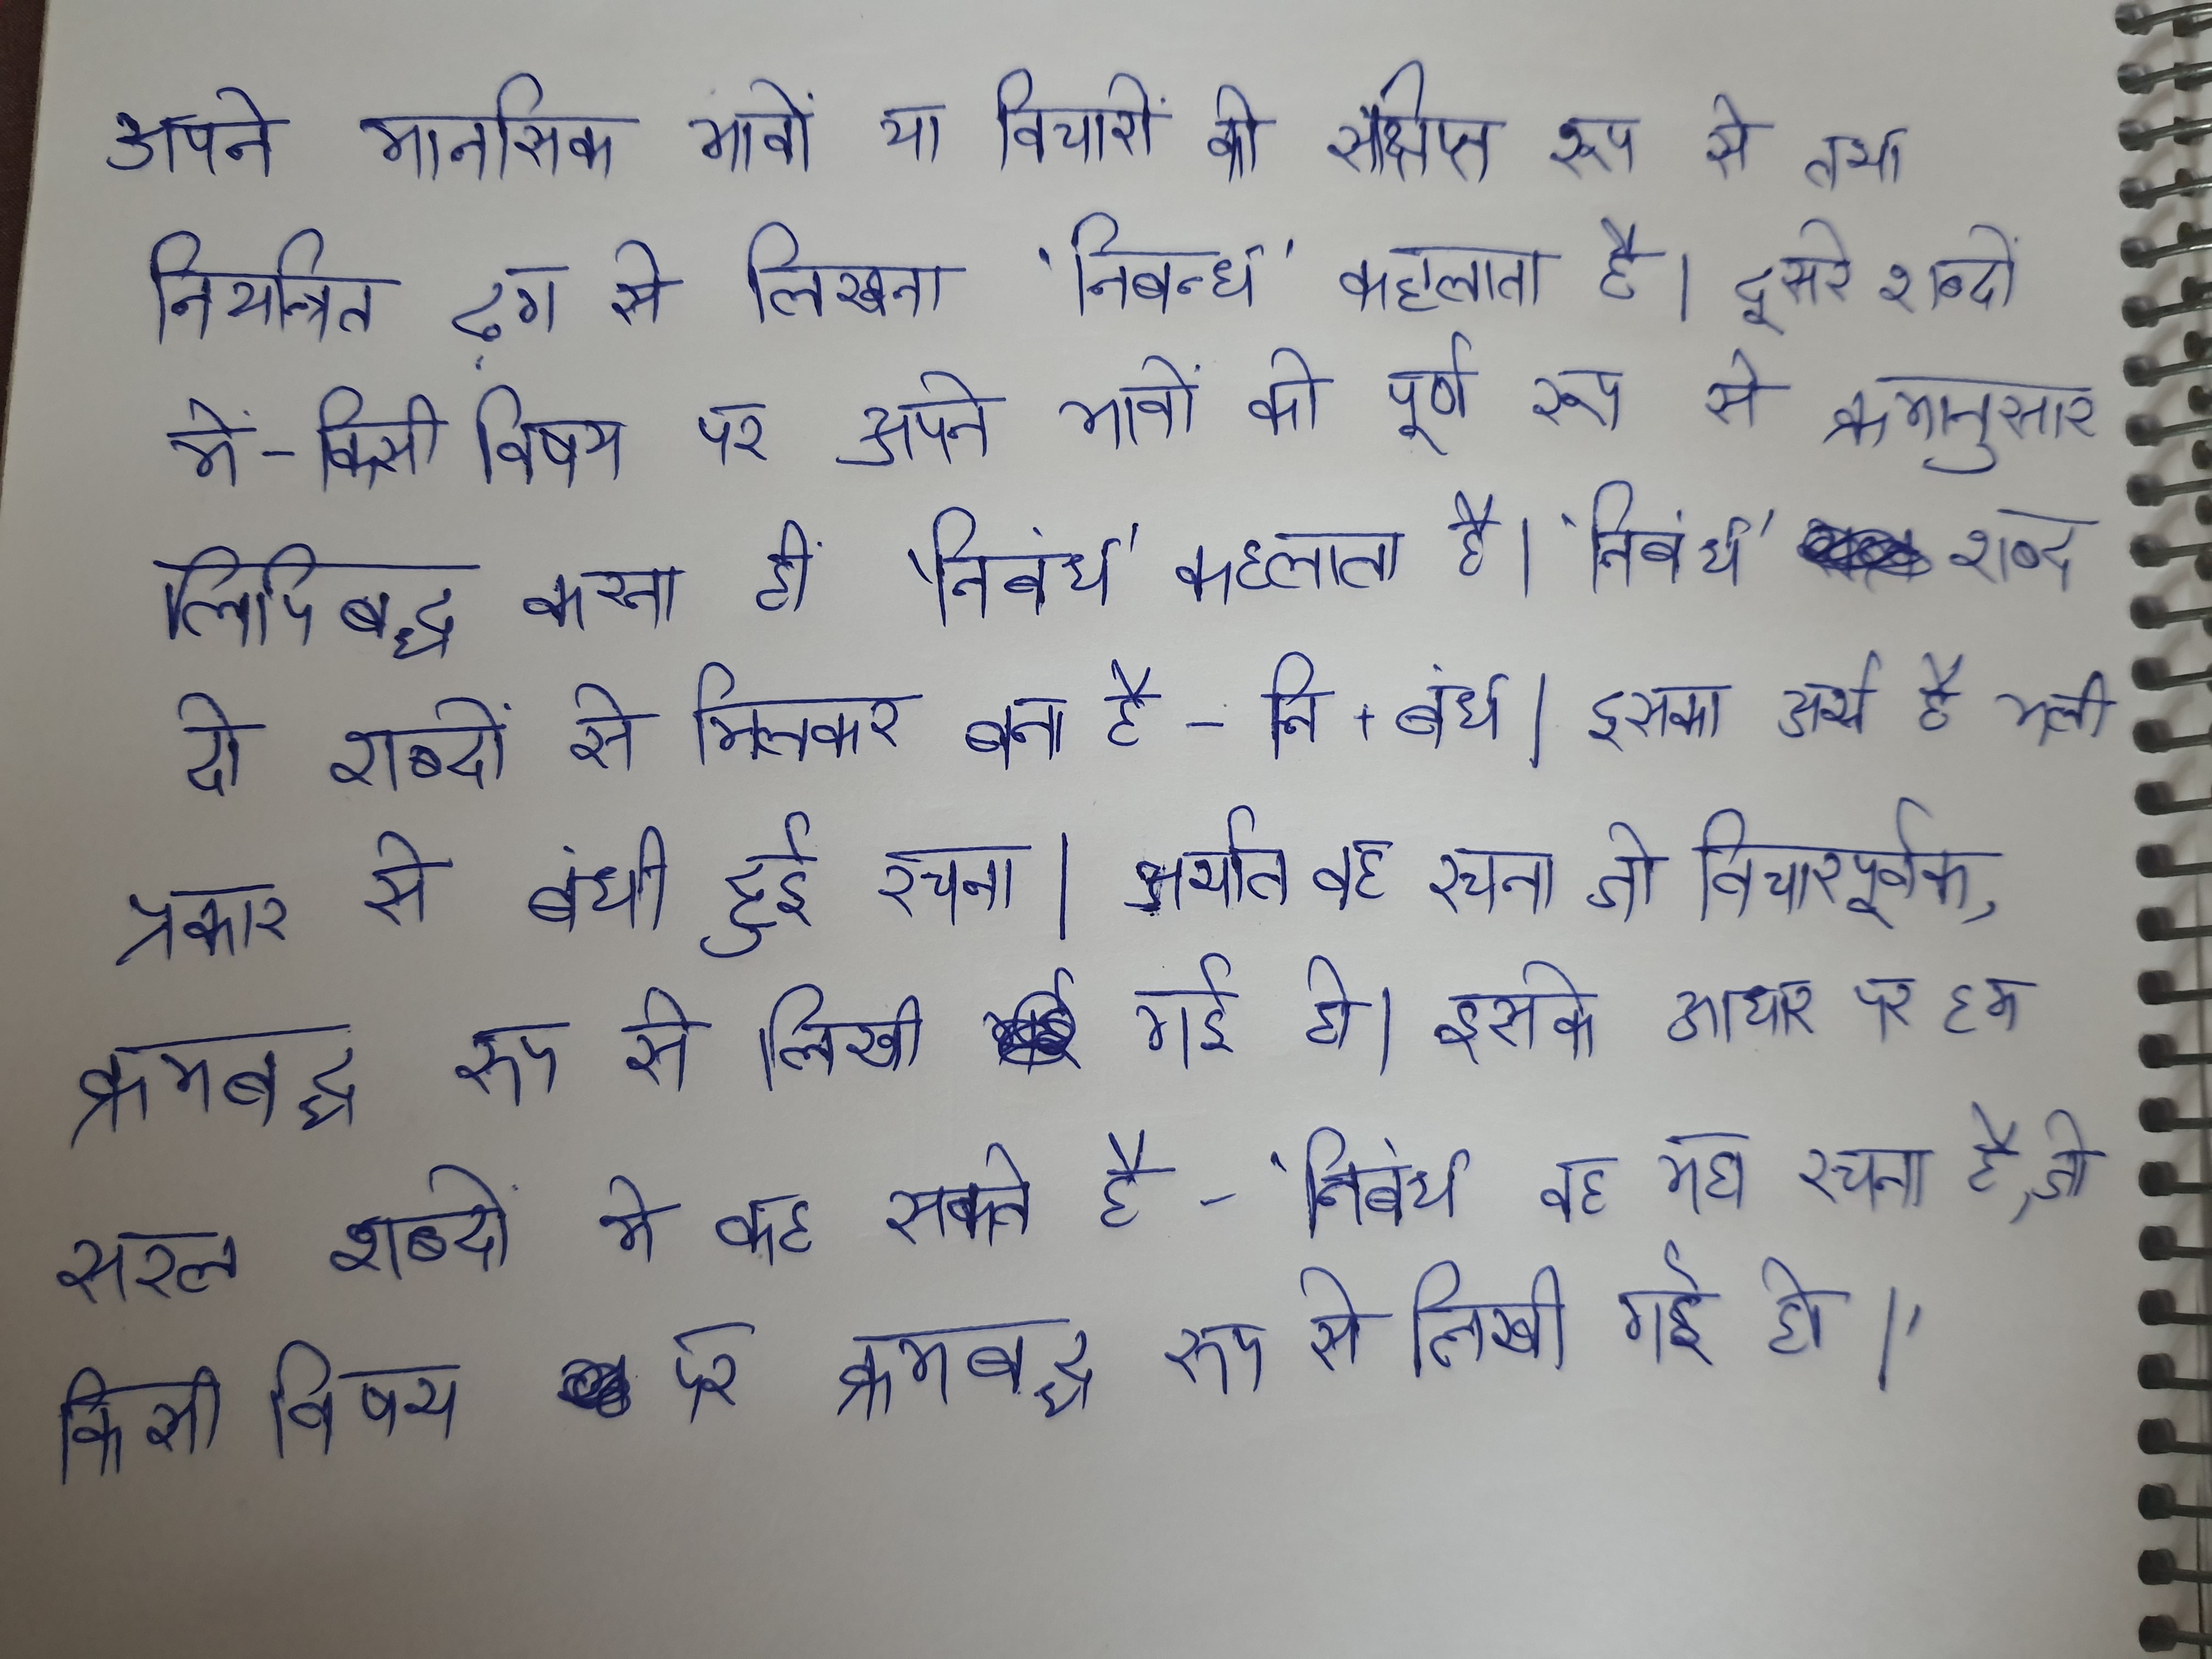 अपने मानसिक भावों या विचारों को संक्षिप्त रूप से तथा
नियन्त्रित ढ़ग से लिखना 'निबन्ध' कहलाता है। दूसरे शब्दों
में - किसी विषय पर अपने भावों को पूर्ण रूप से क्रमानुसार
लिपिबद्ध करना हीं 'निबंध' कहलाता है। 'निबंध' शब्द
दो शब्दों से मिलकर बना है - नि + बंध। इसका अर्थ है भली
प्रकार से बंधी हुई रचना। अर्थात वह रचना जो विचारपूर्वक,
क्रमबद्ध रूप से लिखी गई हो। इसके आधार पर हम
सरल शब्दों मे कह सकते है - 'निबंध वह गद्य रचना है, जो
किसी विषय पर क्रमबद्ध रूप से लिखी गई हो।'